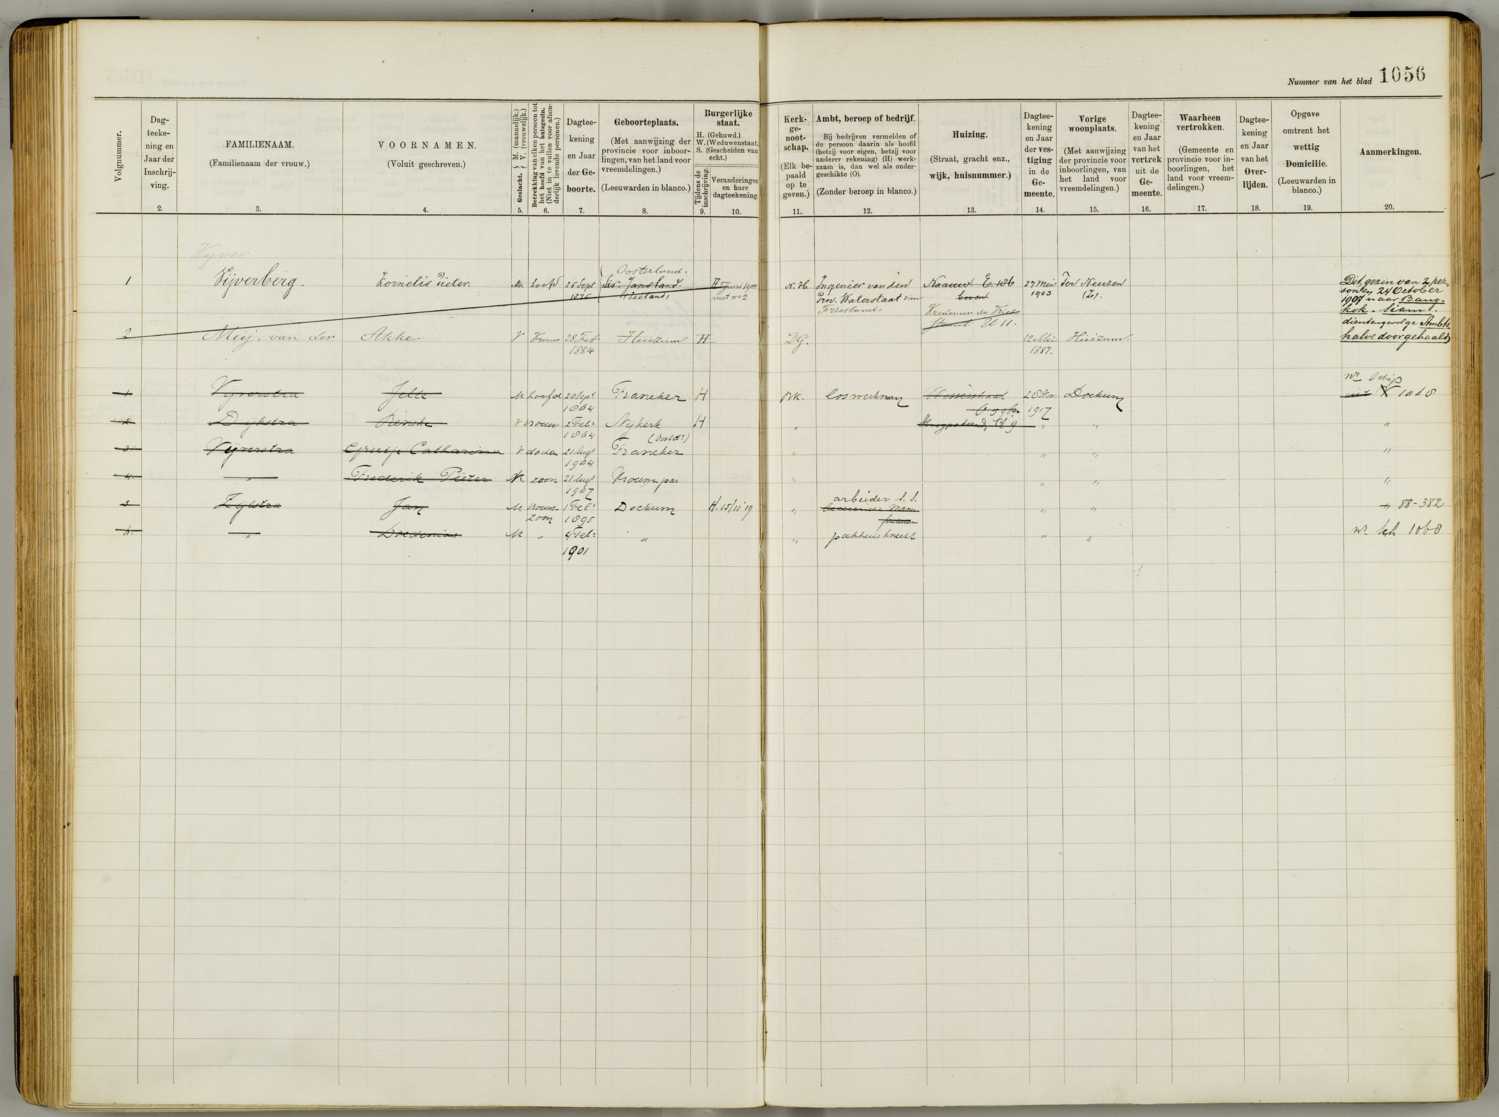 Nummer van het blad 1056
Volgnummer.
Dag-
teeke-
ning en
Jaar der
Inschrij-
ving.
2.
FAMILIENAAM.
(Familienaam der vrouw.)
3.
VOORNAMEN.
(Voluit geschreven.)
4.
Geslacht. M. (mannelijk.) V. (vrouwelijk.)
5.
Betrekking van ieder persoon tot
het hoofd van het huisgezin.
(Niet in te vullen voor afzon-
derlijk levende personen.)
6.
Dagtee-
kening
en Jaar
der Ge-
boorte.
7.
Geboorteplaats.
(Met aanwijzing der
provincie voor inboor-
lingen, van het land voor
vreemdelingen.)
(Leeuwarden in blanco.)
8.
Burgerlijke
staat.
H. (Gehuwd.)
W. (Weduwenstaat.)
S. (Gescheiden van
echt.)
Tijdens de
inschrijving.
9.
Veranderingen
en hare
dagteekening
10.
Kerk-
ge-
noot-
schap.
(Elk be-
paald
op te
geven.)
11.
Ambt, beroep of bedrijf.
Bij bedrijven vermelden of
de persoon daarin als hoofd
(hetzij voor eigen, hetzij voor
anderer rekening) (H) werk-
zaam is, dan wel als onder-
geschikte (O).
(Zonder beroep in blanco.)
12.
Huizing.
(Straat, gracht enz.,
wijk, huisnummer.)
13.
Dagtee-
kening
en Jaar
der ves-
tiging
in de
Ge-
meente.
14.
Vorige
woonplaats.
(Met aanwijzing
der provincie voor
inboorlingen, van
het land voor
vreemdelingen.)
15.
Dagtee-
kening
en Jaar
van het
vertrek
uit de
Ge-
meente.
16.
Waarheen
vertrokken.
(Gemeente en
provincie voor in-
boorlingen, het
land voor vreem-
delingen.)
17.
Dagtee-
kening
en Jaar
van het
Over-
lijden.
18.
Opgave
omtrent het
wettig
Domicilie.
(Leeuwarden in
blanco.)
19.
Aanmerkingen.
20.
1 Vijverberg. Kornelis Pieter M hoofd 28 Sept 1876 Oosterland. N.H. Ingenieur van den
Prov. Waterstaat in
Friesland. 27 Mei 1903 Ter Neuzen
Dit gezin van 2 per-
sonen 24 October
1907 naar Bang-
kok, Siam.
dientengevolge Ambts-
halve doorgehaald
2 Meij, van der Akke V Vrouw 28 1884 Huizum H D.G. 1887 Huizum
1 Vijverstra Jelle M hoofd 1864 Franeker H loswerkman 1917 Dockum 1018
2 Dijkstra Rinske V vrouw 2 Feb: 1864 Nijkerk H " " " "
3 Vijverstra Grietje Catharina V dochter 21 Aug 1904 Franeker " " "
4 " Frederik Pieter M zoon 21 Aug 1907 Vrouwepar " " "
5 Zijlstra Jan M vrouws
zoon 1 Feb: 1895 Dockum H. 15/11 '19 " arbeider " " " 88-382
6 " M " 4 Feb: 1901 " " pakhuisknecht " " 1068